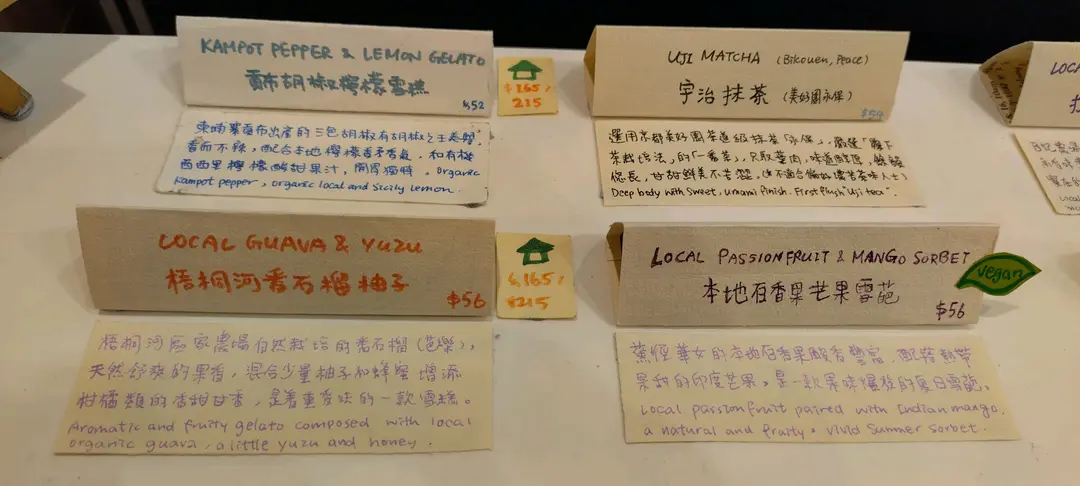 KAMPOT PEPPER & LEMON GELATO
貢布胡椒檸檬雪糕
$52
$165,
215
柬埔寨貢布出產的三色胡椒有胡椒之王美譽,
香而不辣。配合本地檸檬香柔香氣,和有機
西西里檸檬酸甜果汁,層獨特。organic
Kampot pepper, organic local and Sicily lemon.
UJI MATCHA (Bikouen, Peace)
宇治抹茶 (美好園永保)
$59
選用京都美好園茶道級抹茶「永保」,嚴選「覆下
茶栽培法」的「一番茶」,只取葉肉,味道醇厚,餘韻
悠長,甘甜鮮美不苦澀。(不適合偏好濃苦茶味人士)
Deep body with sweet, umami finish. First flush "Uji tea".
LOCAL
LOCAL GUAVA & YUZU
梧桐河番石榴柚子
$56
$165,
$215
梧桐河馬家農場自然栽培的番石榴(芭樂),
天然舒爽的果香,混合少量柚子和蜂蜜增添
柑橘類的香甜甘香,是着重香味的一款雪糕。
Aromatic and fruity gelato composed with local
organic guava, a little yuzu and honey.
LOCAL PASSIONFRUIT & MANGO SORBET
本地百香果芒果雪葩
$56
vegan
本地百香果酸香豐富,配搭熱帶
果甜的印度芒果。是一款果味爆發的夏日雪葩。
Local passionfruit paired with Indian mango.
a natural and fruity, vivid summer sorbet.